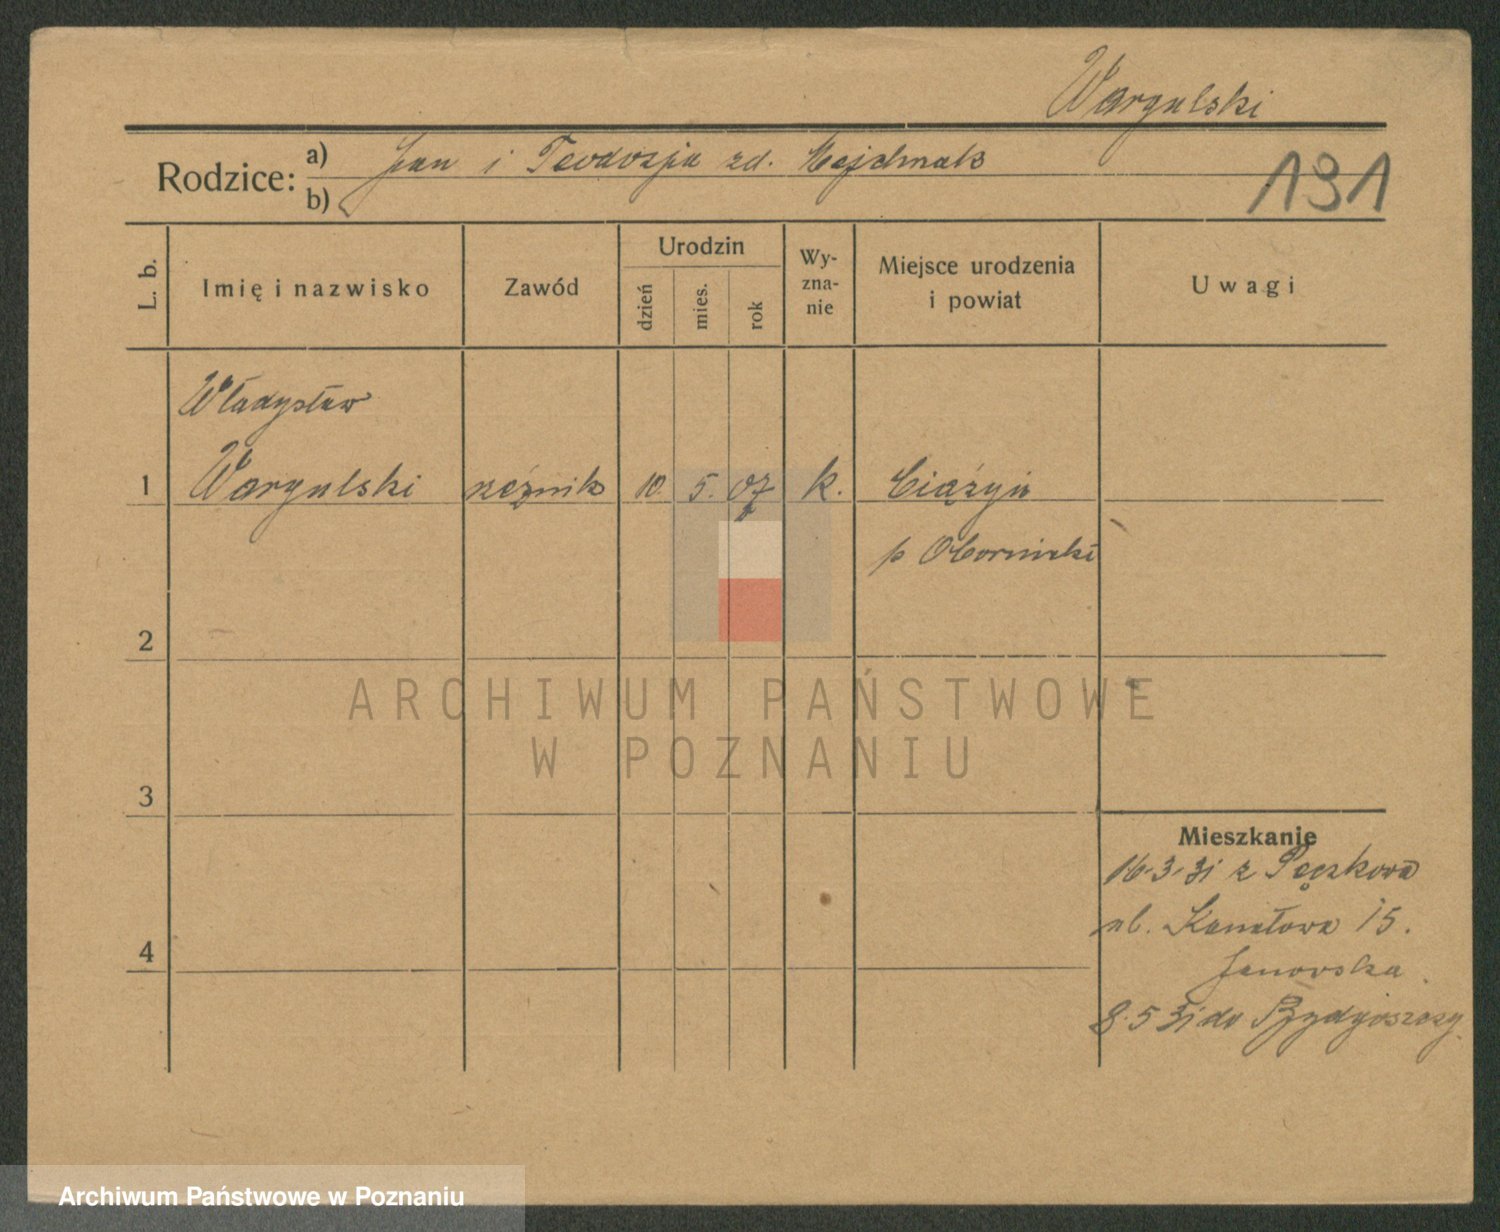 Wargulski
Rodzice: a) Jan i Teodozja zd. Mejchnak
b)
131
L. b. Imię i nazwisko Zawód Urodzin dzień mies. rok Wy-zna-nie Miejsce urodzenia i powiat Uwagi
Władysław
1 Wargulski rzeźnik 10. 5. 07 k. Ciążyń
p Obornicki
2
3
Mieszkanie
16.3.31 z Pęczkowa
ul. Kanałowa 15.
4 Janowska
8.5 31 do Bydgoszczy
ARCHIWUM PAŃSTWOWE
W POZNANIU
Archiwum Państwowe w Poznaniu